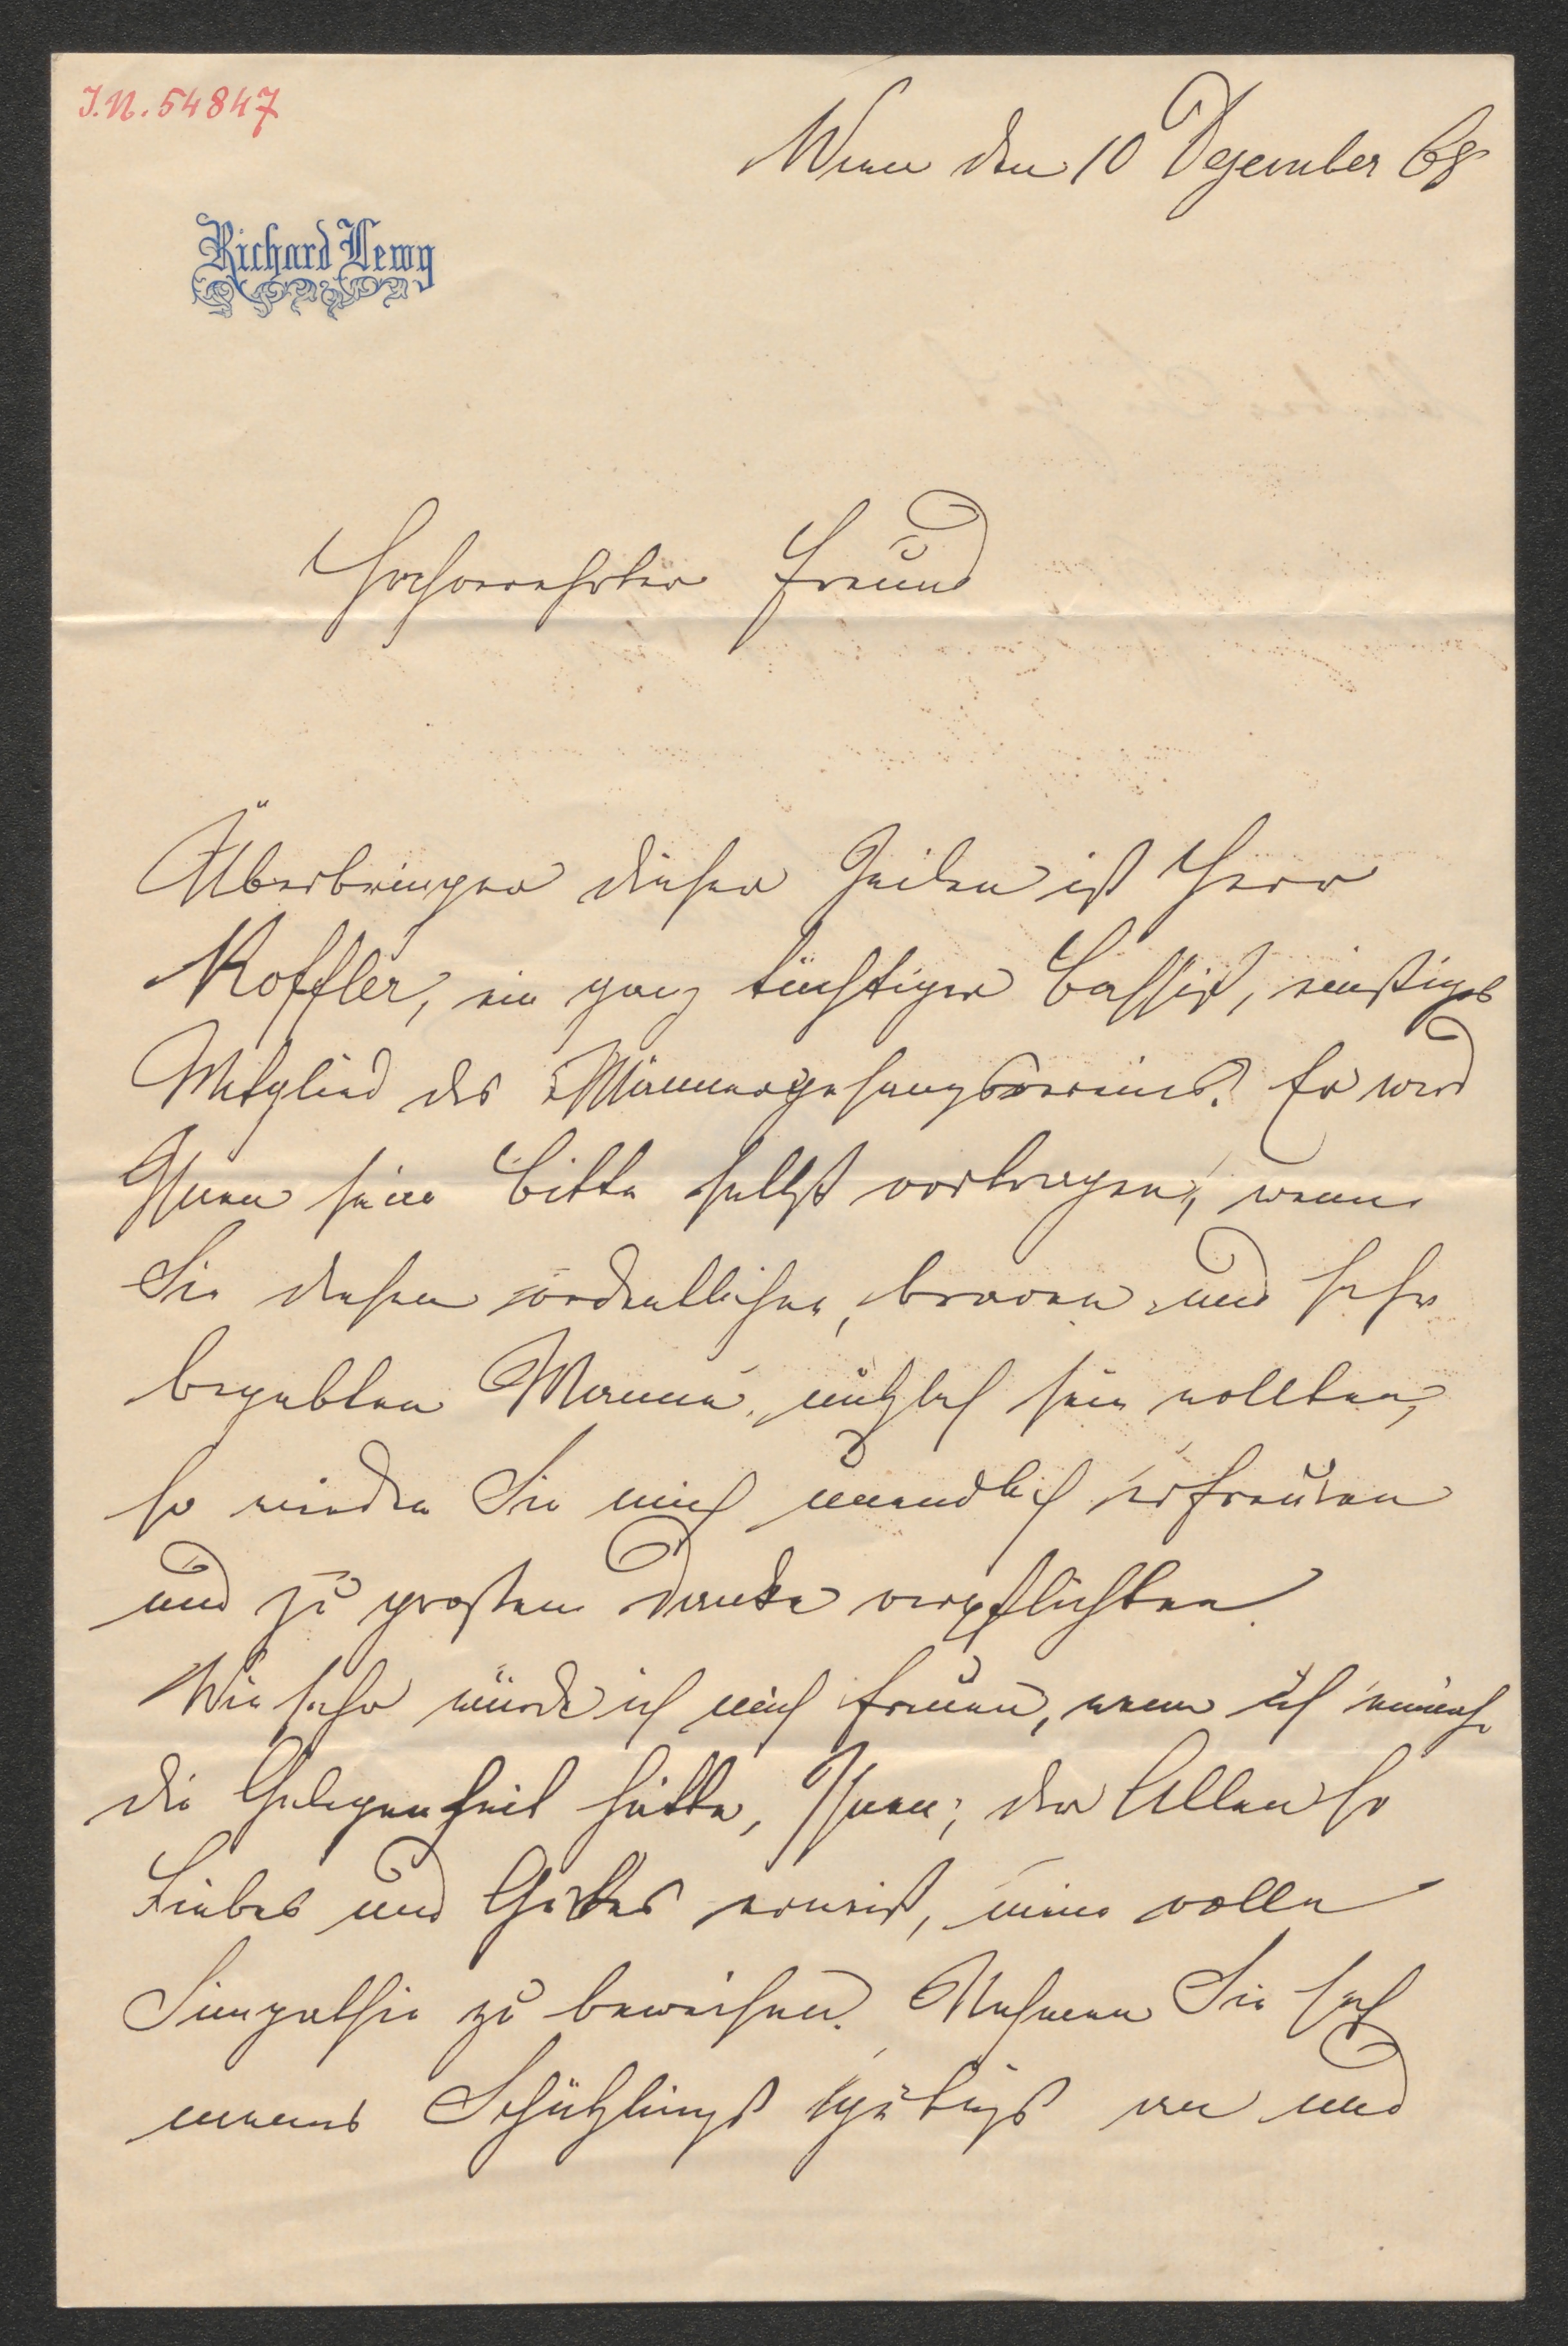 J.N. 54847
Wien den 10 Dezember 68
Richard Lewy
Hochverehrter Freund
Überbringer dieser Zeilen ist Herr
Koffler, ein ganz tüchtiger Bassist, einstiges
Mitglied des Männergesangsvereines. Er wird
Ihnen seine Bitte selbst vortragen, wenn
Sie diesem ordentlichen, braven und sehr
begabten Manne, nützlich sein wollten,
so würden Sie mich unendlich erfreuen
und zu großem Danke verpflichten.
Wie sehr würde ich mich freuen, wenn ich
die Gelegenheit hätte, Ihnen, der Allen so
Liebes und Gutes erweist, meine volle
Simpathie zu beweisen. Nehmen Sie sich
meines Schützlings gütigst an und